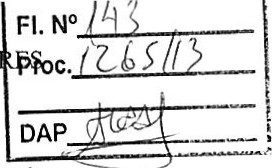 Fl. Nº 143
RES
Proc. 1265/13
DAP